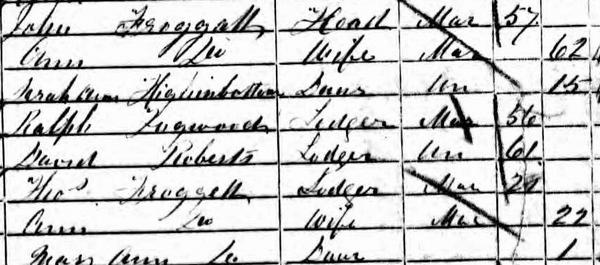 John Froggatt Head Mar 57
Ann Do Wife Mar 62
Sarah Ann Higginbottom Daur Un 15
Ralph Lodger Mar 56
David Roberts Lodger Un 61
Thos Froggett Lodger Mar
Ann Do Wife Mar 22
Mary Ann Do Daur 1